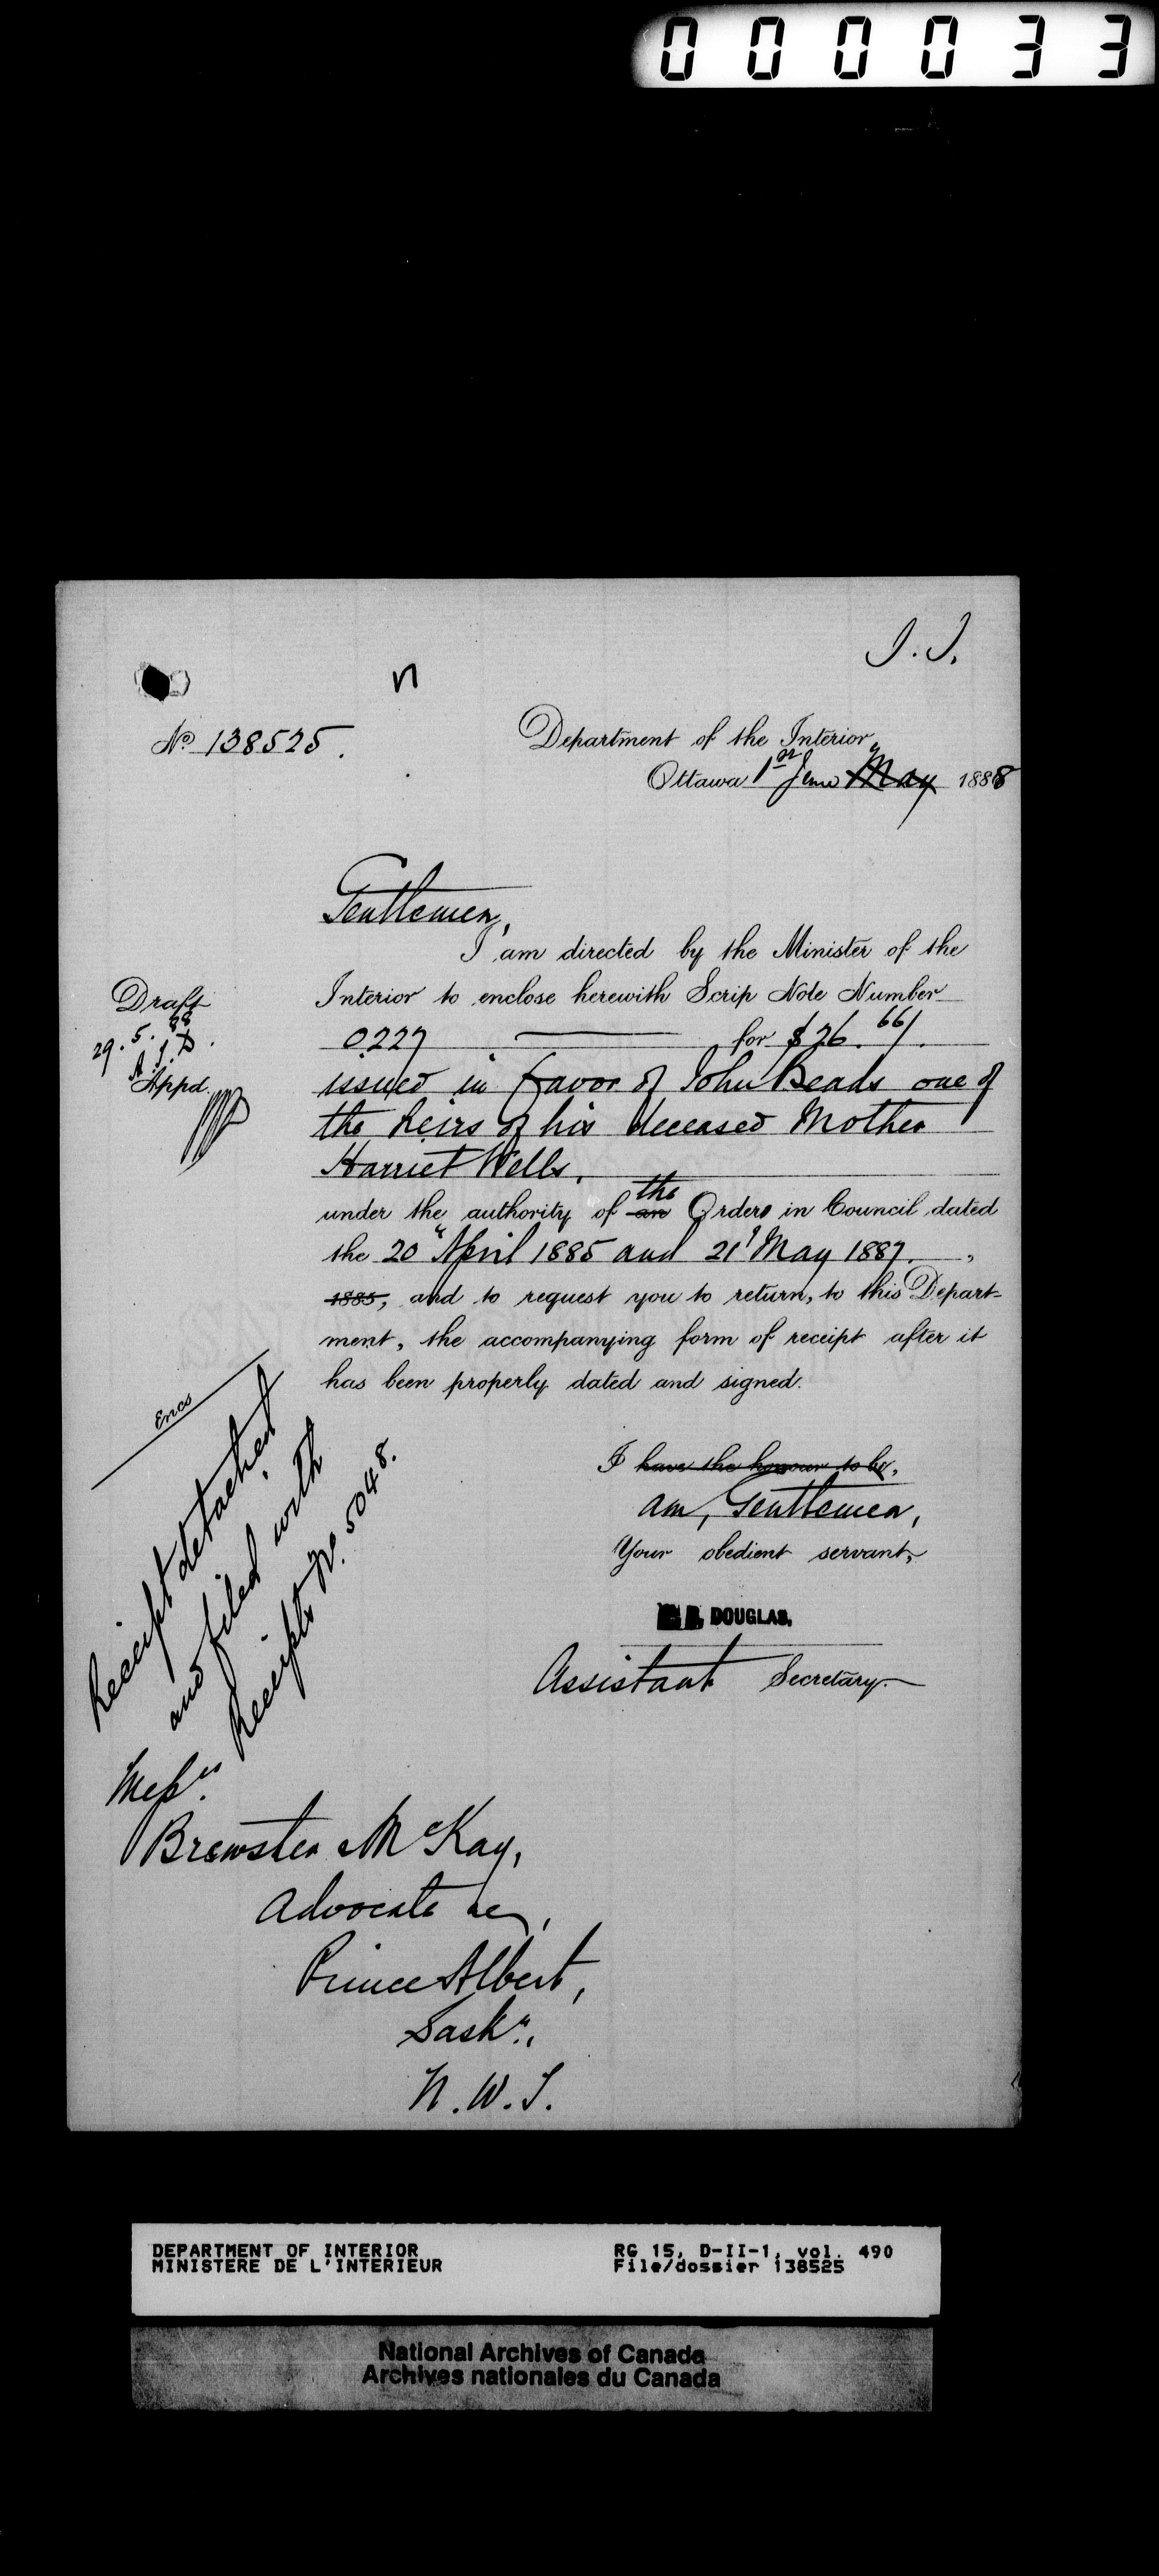 000033
J.J.
n
No 138525.
Department of the Interior,
Ottawa 1st June May 1888
Gentlemen,
I am directed by the Minister of the
Interior to enclose herewith Scrip Note Number
0.227 for $26.66/.
issued in favor of John Beads one of
the heirs of his deceased Mother
Harriet Wells.
under the authority of an the Orders in Council dated
the 20" April 1885 and 21st May 1887.,
1885, and to request you to return, to this Depart-
ment, the accompanying form of receipt after it
has been properly dated and signed.
Draft
29.5.88
A.J.D.
Appd
Encs
Receipt detached
and filed with
Receipts No. 5048.
I have the honour to be,
am, Gentlemen,
Your obedient servant,
DOUGLAS,
Assistant Secretary.
Messrs.
Brewster McKay,
Advocate &c,
Prince Albert,
Saskn.,
N.W.T.
DEPARTMENT OF INTERIOR RG 15, D-II-1, vol. 490
MINISTERE DE L'INTERIEUR File/dossier 138525
National Archives of Canada
Archives nationales du Canada